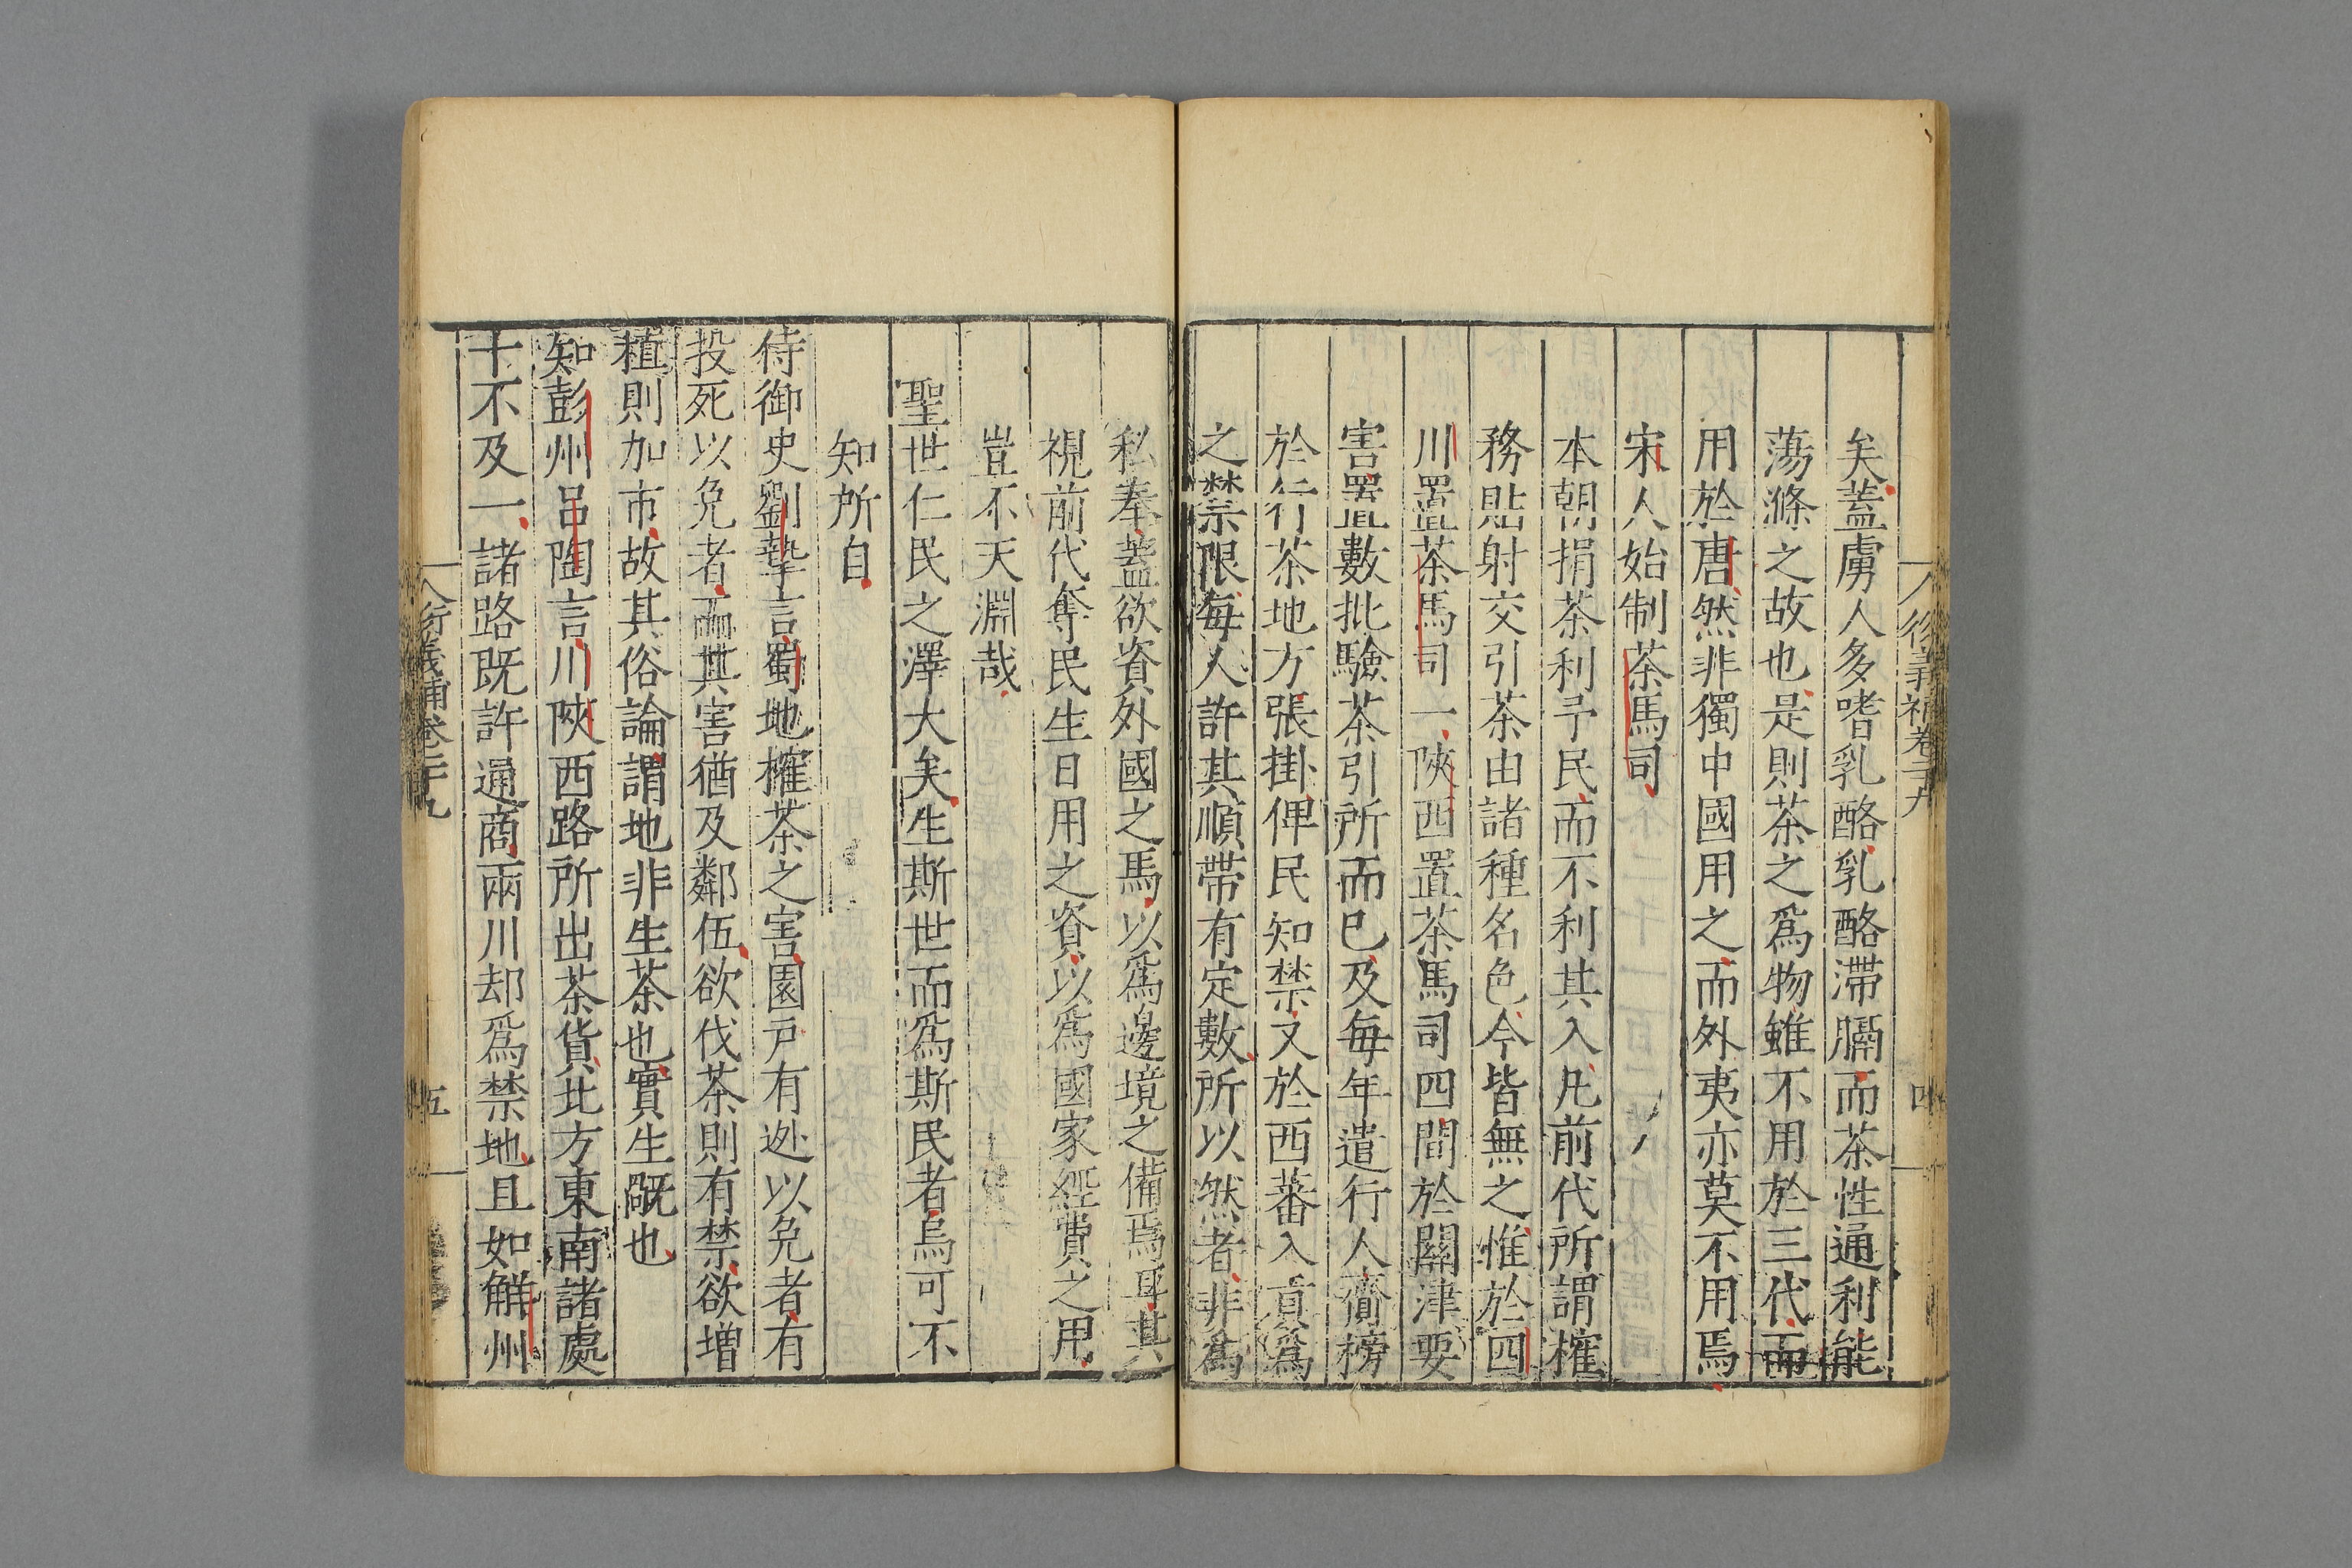 衍義補卷二十九
四
矣蓋虜人多嗜乳酪乳酪滯膈而茶性通利能
蕩滌之故也是則茶之爲物雖不用於三代而
用於唐然非獨中國用之而外夷亦莫不用焉
宋人始制茶馬司
本朝捐茶利予民而不利其入凡前代所謂榷
務貼射交引茶由諸種名色今皆無之惟於四
川置茶馬司一陝西置茶馬司四間於關津要
害置數批驗茶引所而已及每年遣行人齎榜
於行茶地方張掛俾民知禁又於西蕃入貢爲
之禁限每人許其順帶有定數所以然者非爲
私奉蓋欲資外國之馬以爲邊境之備焉耳其
視前代奪民生日用之資以爲國家經費之用
豈不天淵哉
聖世仁民之澤大矣生斯世而爲斯民者烏可不
知所自
侍御史劉摯言蜀地榷茶之害園戶有逃以免者有
投死以免者而其害猶及鄰伍欲伐茶則有禁欲增
植則加市故其俗論謂地非生茶也實生禍也
知彭州呂陶言川陝西路所出茶貨北方東南諸處
十不及一諸路既許通商兩川却爲禁地且如解州
衍義補卷二十九
五